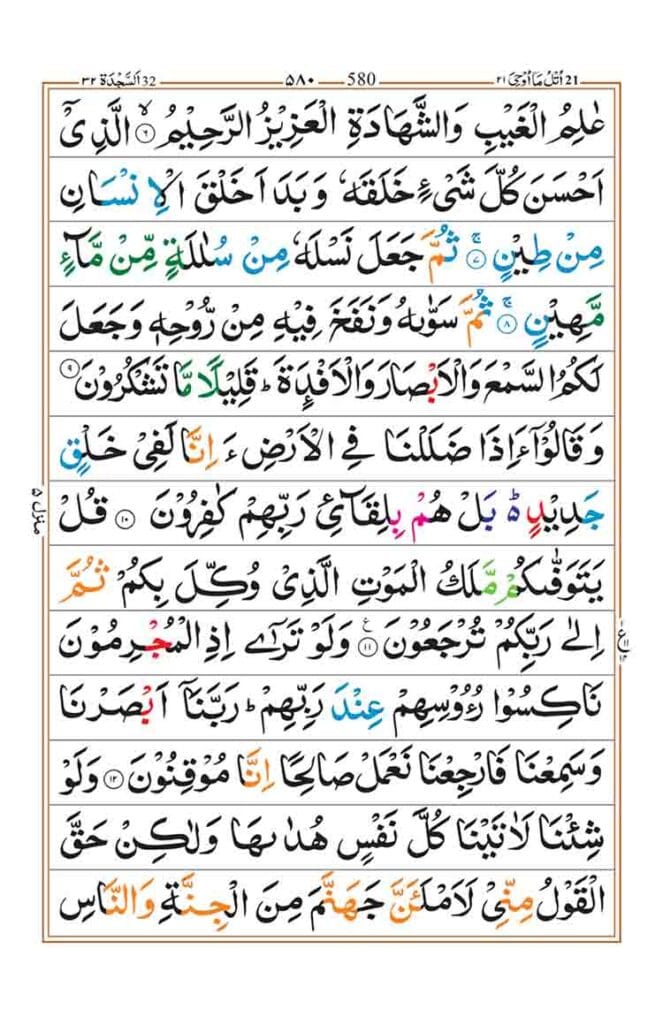 32 اَلسَّجْدَة ٣٢ ٥٨٠ 580 اُتْلُ مَا اُوْحِىَ ٢١ 21
عٰلِمُ الْغَيْبِ وَالشَّهَادَةِ الْعَزِيْزُ الرَّحِيْمُ ۙ‏ ٦ الَّذِىْۤ
اَحْسَنَ كُلَّ شَىْءٍ خَلَقَهٗ وَبَدَاَ خَلْقَ الْاِنْسَانِ
مِنْ طِيْنٍ ۚ‏ ٧ ثُمَّ جَعَلَ نَسْلَهٗ مِنْ سُلٰلَةٍ مِّنْ مَّآءٍ
مَّهِيْنٍ ۚ‏ ٨ ثُمَّ سَوّٰٮهُ وَنَفَخَ فِيْهِ مِنْ رُّوْحِهٖ وَجَعَلَ
لَكُمُ السَّمْعَ وَالْاَبْصَارَ وَالْاَفْـِٕدَةَ ؕ قَلِيْلًا مَّا تَشْكُرُوْنَ‏ ٩
وَقَالُوْۤا ءَاِذَا ضَلَلْنَا فِى الْاَرْضِ ءَ اِنَّا لَفِىْ خَلْقٍ
جَدِيْدٍ ؕ بَلْ هُمْ بِلِقَآئِ رَبِّهِمْ كٰفِرُوْنَ‏ ١٠ قُلْ
يَتَوَفّٰٮكُمْ مَّلَكُ الْمَوْتِ الَّذِىْ وُكِّلَ بِكُمْ ثُمَّ
اِلٰى رَبِّكُمْ تُرْجَعُوْنَ ١١ ع وَلَوْ تَرٰٓى اِذِ الْمُجْرِمُوْنَ
نَاكِسُوْا رُءُوْسِهِمْ عِنْدَ رَبِّهِمْ ؕ رَبَّنَاۤ اَبْصَرْنَا
وَسَمِعْنَا فَارْجِعْنَا نَعْمَلْ صَالِحًا اِنَّا مُوْقِنُوْنَ‏ ١٢ وَلَوْ
شِئْنَا لَاٰتَيْنَا كُلَّ نَفْسٍ هُدٰٮهَا وَلٰكِنْ حَقَّ
الْقَوْلُ مِنِّىْ لَاَمْلَئَنَّ جَهَنَّمَ مِنَ الْجِنَّةِ وَالنَّاسِ
منزل ٥